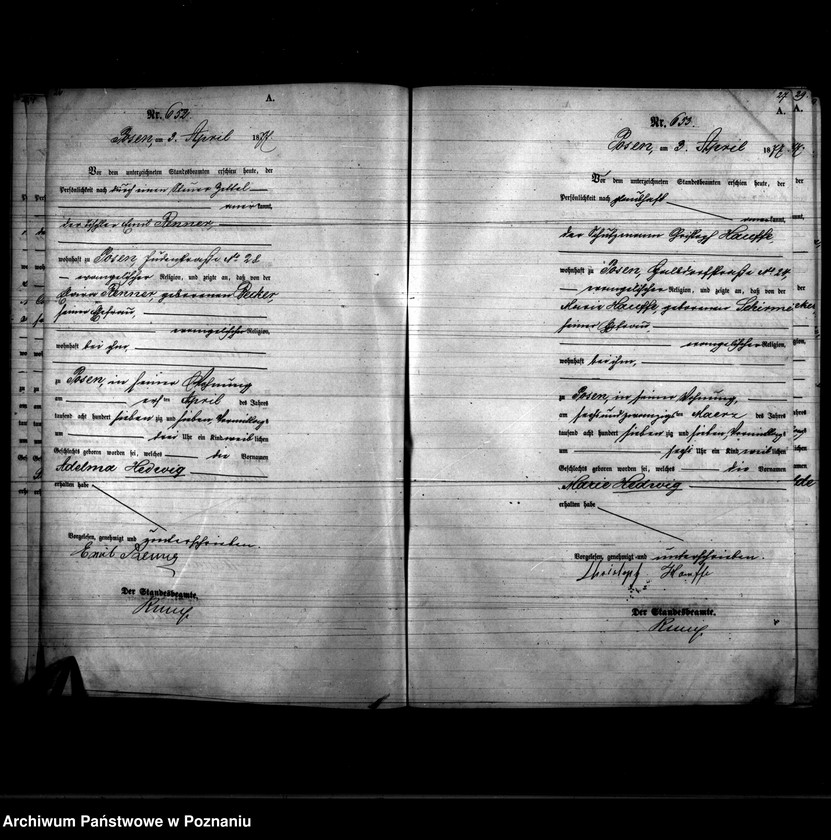 A.
Nr. 652.
Posen, am 3. April 1877
Vor dem unterzeichneten Standesbeamten erschien heute, der
Persönlichkeit nach durch einen Steuer Zettel
anerkannt,
der Tischler Emil Renner,
wohnhaft zu Posen, Judenstraße No 28
evangelischer Religion, und zeigte an, daß von der
Renner geborenen Becker
seiner Ehefrau,
evangelischer Religion,
wohnhaft bei ihm,
zu Posen, in seiner Wohnung
am ersten April des Jahres
tausend acht hundert sieben zig und sieben Vormittags
um drei Uhr ein Kind weiblichen
Geschlechts geboren worden sei, welches die Vornamen
Adelma Hedewig
erhalten habe
Vorgelesen, genehmigt und unterschrieben.
Emil Renner
Der Standesbeamte.
27
A.
Nr. 653.
Posen, am 3. April 1877
Vor dem unterzeichneten Standesbeamten erschien heute, der
Persönlichkeit nach
anerkannt,
der Schutzmann Christoph Hauffe,
wohnhaft zu Posen, Halbdorfstraße No 24
evangelischer Religion, und zeigte an, daß von der
Marie Hauffe, geborenen Schirme
seiner Ehefrau
evangelischer Religion,
wohnhaft bei ihm,
zu Posen, in seiner Wohnung,
am sechsundzwanzigsten Maerz des Jahres
tausend acht hundert sieben zig und sieben Vormittags
um sechs Uhr ein Kind weiblichen
Geschlechts geboren worden sei, welches die Vornamen
Marie Hedwig
erhalten habe
Vorgelesen, genehmigt und unterschrieben.
Christoph Hauffe
Der Standesbeamte.
Archiwum Państwowe w Poznaniu